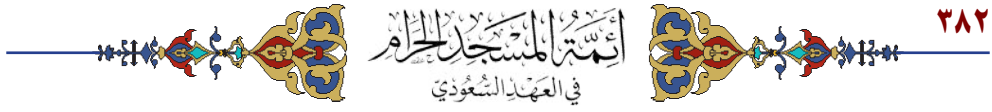 ٣٨٢
أَئِمَّةُ المَسْجِدِ الحَرَامِ
في العَهْدِ السُّعُودِيّ